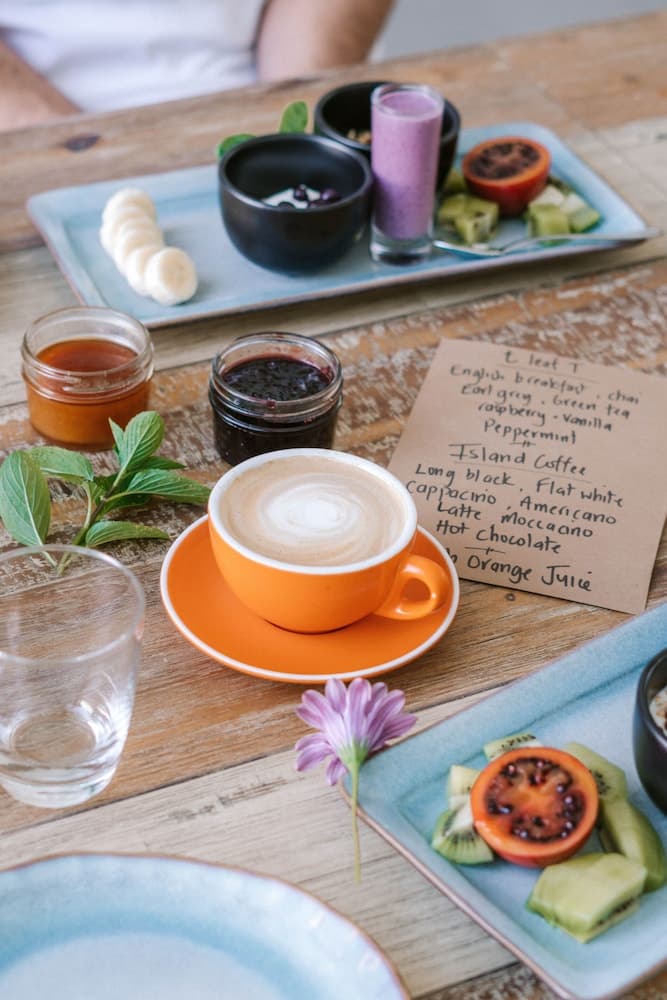 E leaf T
English breakfast . chai
Earl grey . Green tea
raspberry . vanilla
Peppermint
Island Coffee
Long black . Flat white
Cappacino . Americano
Latte Moccacino
Hot Chocolate
Orange Juice